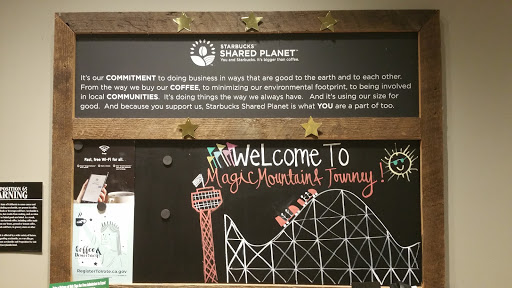 STARBUCKS™
SHARED PLANET™
You and Starbucks. It's bigger than coffee.
It's our COMMITMENT to doing business in ways that are good to the earth and to each other.
From the way we buy our COFFEE, to minimizing our environmental footprint, to being involved
in local COMMUNITIES. It's doing things the way we always have. And it's using our size for
good. And because you support us, Starbucks Shared Planet is what YOU are a part of too.
WELCOME TO
Magic Mountain & Tourney!
Fast, free Wi-Fi for all.
Coffee &
Democracy
RegisterToVote.ca.gov
PROPOSITION 65
WARNING